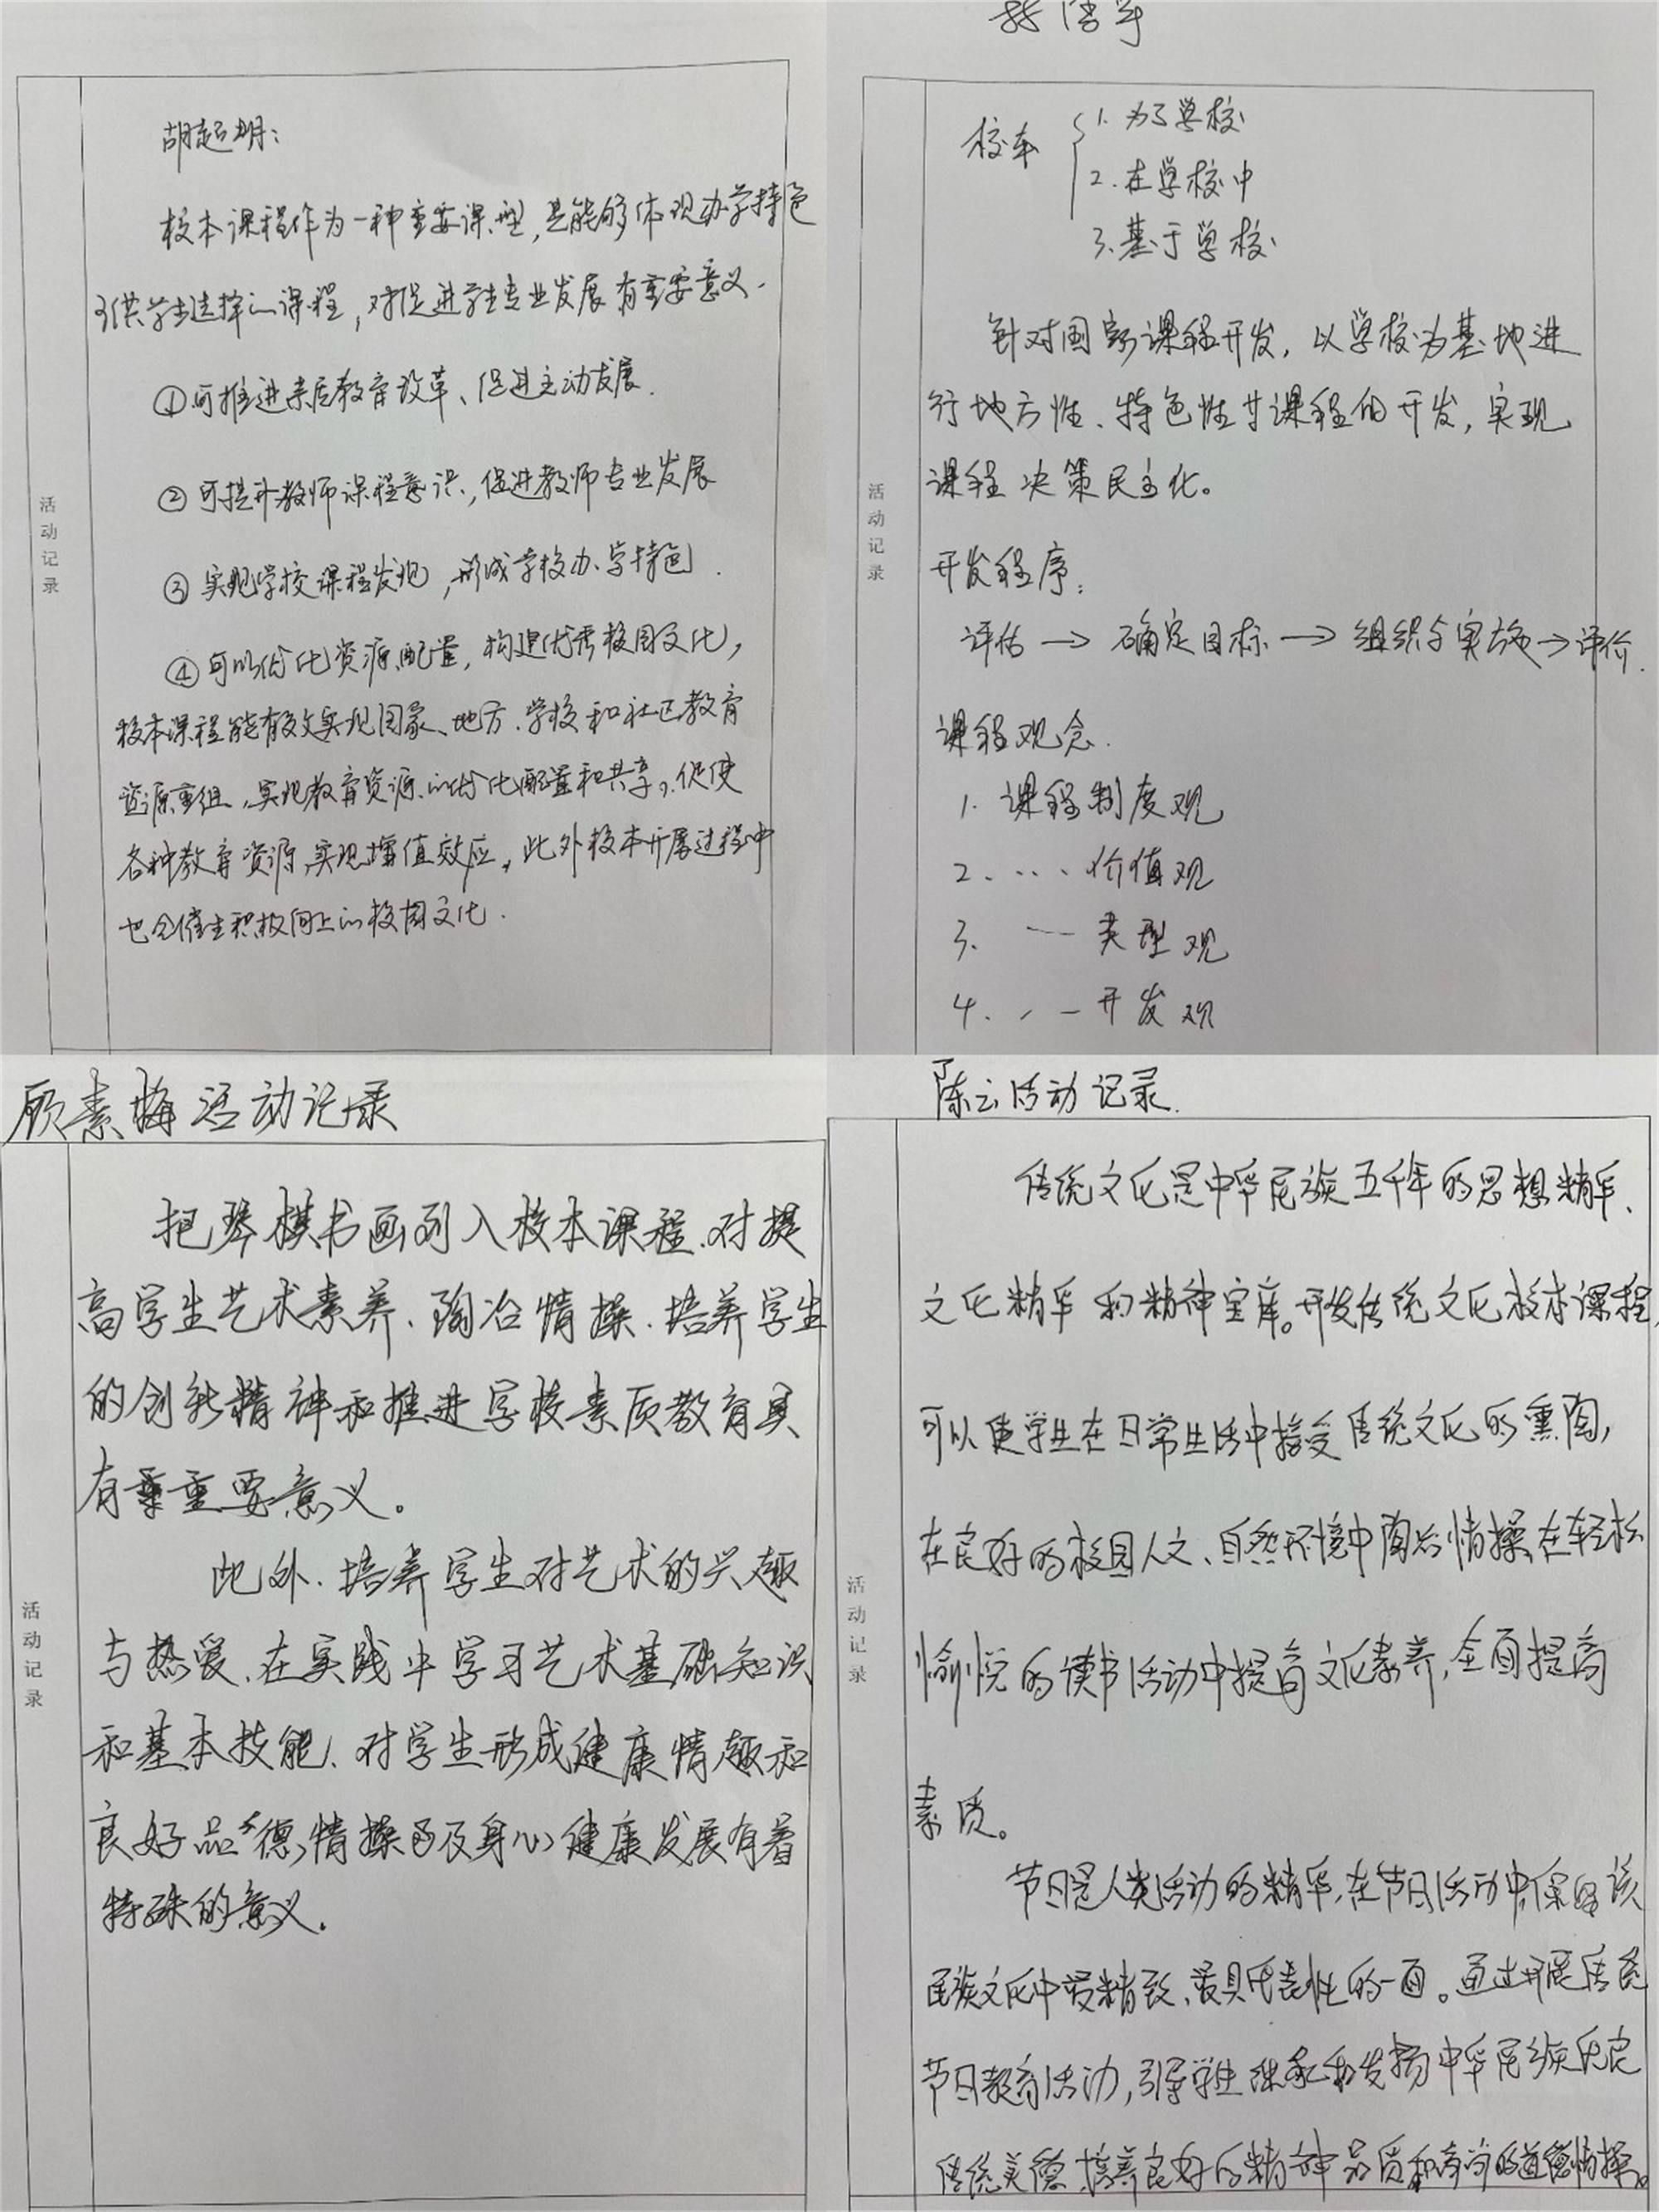 胡起明：
校本课程作为一种重要课型，是能够体现办学特色
可供学生选择的课程，对促进学生专业发展有重要意义.
①可推进素质教育改革、促进主动发展.
②可提升教师课程意识，促进教师专业发展
③实现学校课程发现，形成学校办学特色.
④可以优化资源配置，构建优秀校园文化，
校本课程能有效实现国家、地方、学校和社区教育
资源重组，实现教育资源的优化配置和共享，促使
各种教育资源实现增值效应，此外校本开展过程中
也会催生积极向上的校园文化.
活动记录
校本
1.为了学校
2.在学校中
3.基于学校
针对国家课程开发，以学校为基地进
行地方性、特色性课程的开发，实现
课程决策民主化。
开发程序：
评估→确定目标→组织与实施→评价.
课程观念.
1.课程制度观
2.….价值观
3.—类型观
4.--开发观
活动记录
顾素梅活动记录
把琴棋书画列入校本课程.对提
高学生艺术素养、陶冶情操.培养学生
的创新精神和推进学校素质教育具
有重要意义。
此外.培养学生对艺术的兴趣
与热爱.在实践中学习艺术基础知识
和基本技能、对学生形成健康情趣和
良好品德,情操以及身心健康发展有着
特殊的意义.
活动记录
陈云活动记录.
传统文化是中华民族五千年的思想精华、
文化精华和精神宝库。开发传统文化校本课程,
可以使学生在日常生活中接受传统文化的熏陶,
在良好的校园人文、自然环境中陶冶情操,在轻松
愉悦的读书活动中提高文化素养,全面提高
素质。
节日是人类活动的精华,在节日活动中保留该
民族文化中最精致、最具代表性的一面。通过开展传统
节日教育活动,引导学生继承和发扬中华民族优良
传统美德,培养良好的精神品质和高尚的道德情操。
活动记录